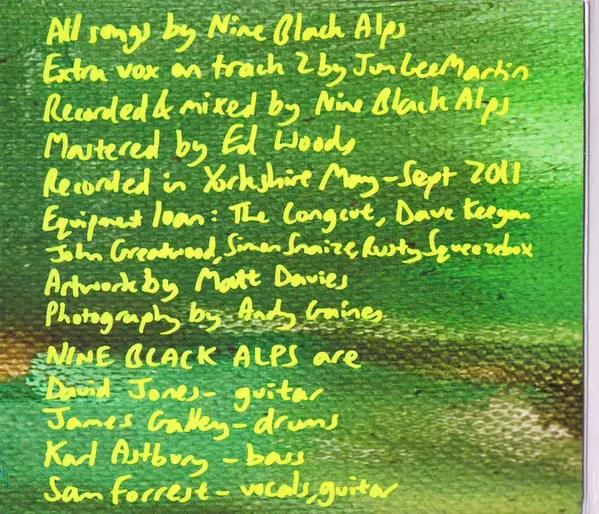 All songs by Nine Black Alps
Extra vox on track 2 by Jun Lee Martin
Recorded & mixed by Nine Black Alps
Mastered by Ed Woods
Recorded in Yorkshire May-Sept 2011
Equipment loan: The Longcut, Dave Keegan
John Greatwood, Simon Snaize, Rusty Squeezebox
Artwork by Matt Davies
Photography by Andy Gaines
NINE BLACK ALPS are
David Jones - guitar
James Galley - drums
Karl Astbury - bass
Sam Forrest - vocals, guitar